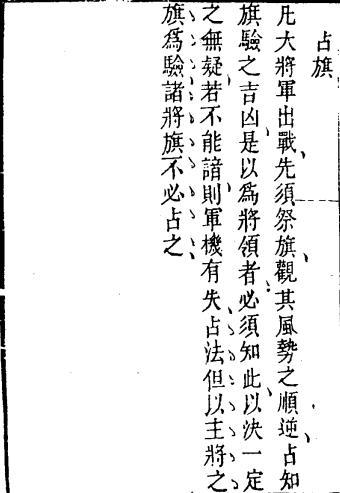 占旗
凡大將軍出戰先須祭旗觀其風勢之順逆占知
旗驗之吉凶是以爲將領者必須知此以決一定
之無疑若不能諳則軍機有失占法但以主將之
旗爲驗諸將旗不必占之